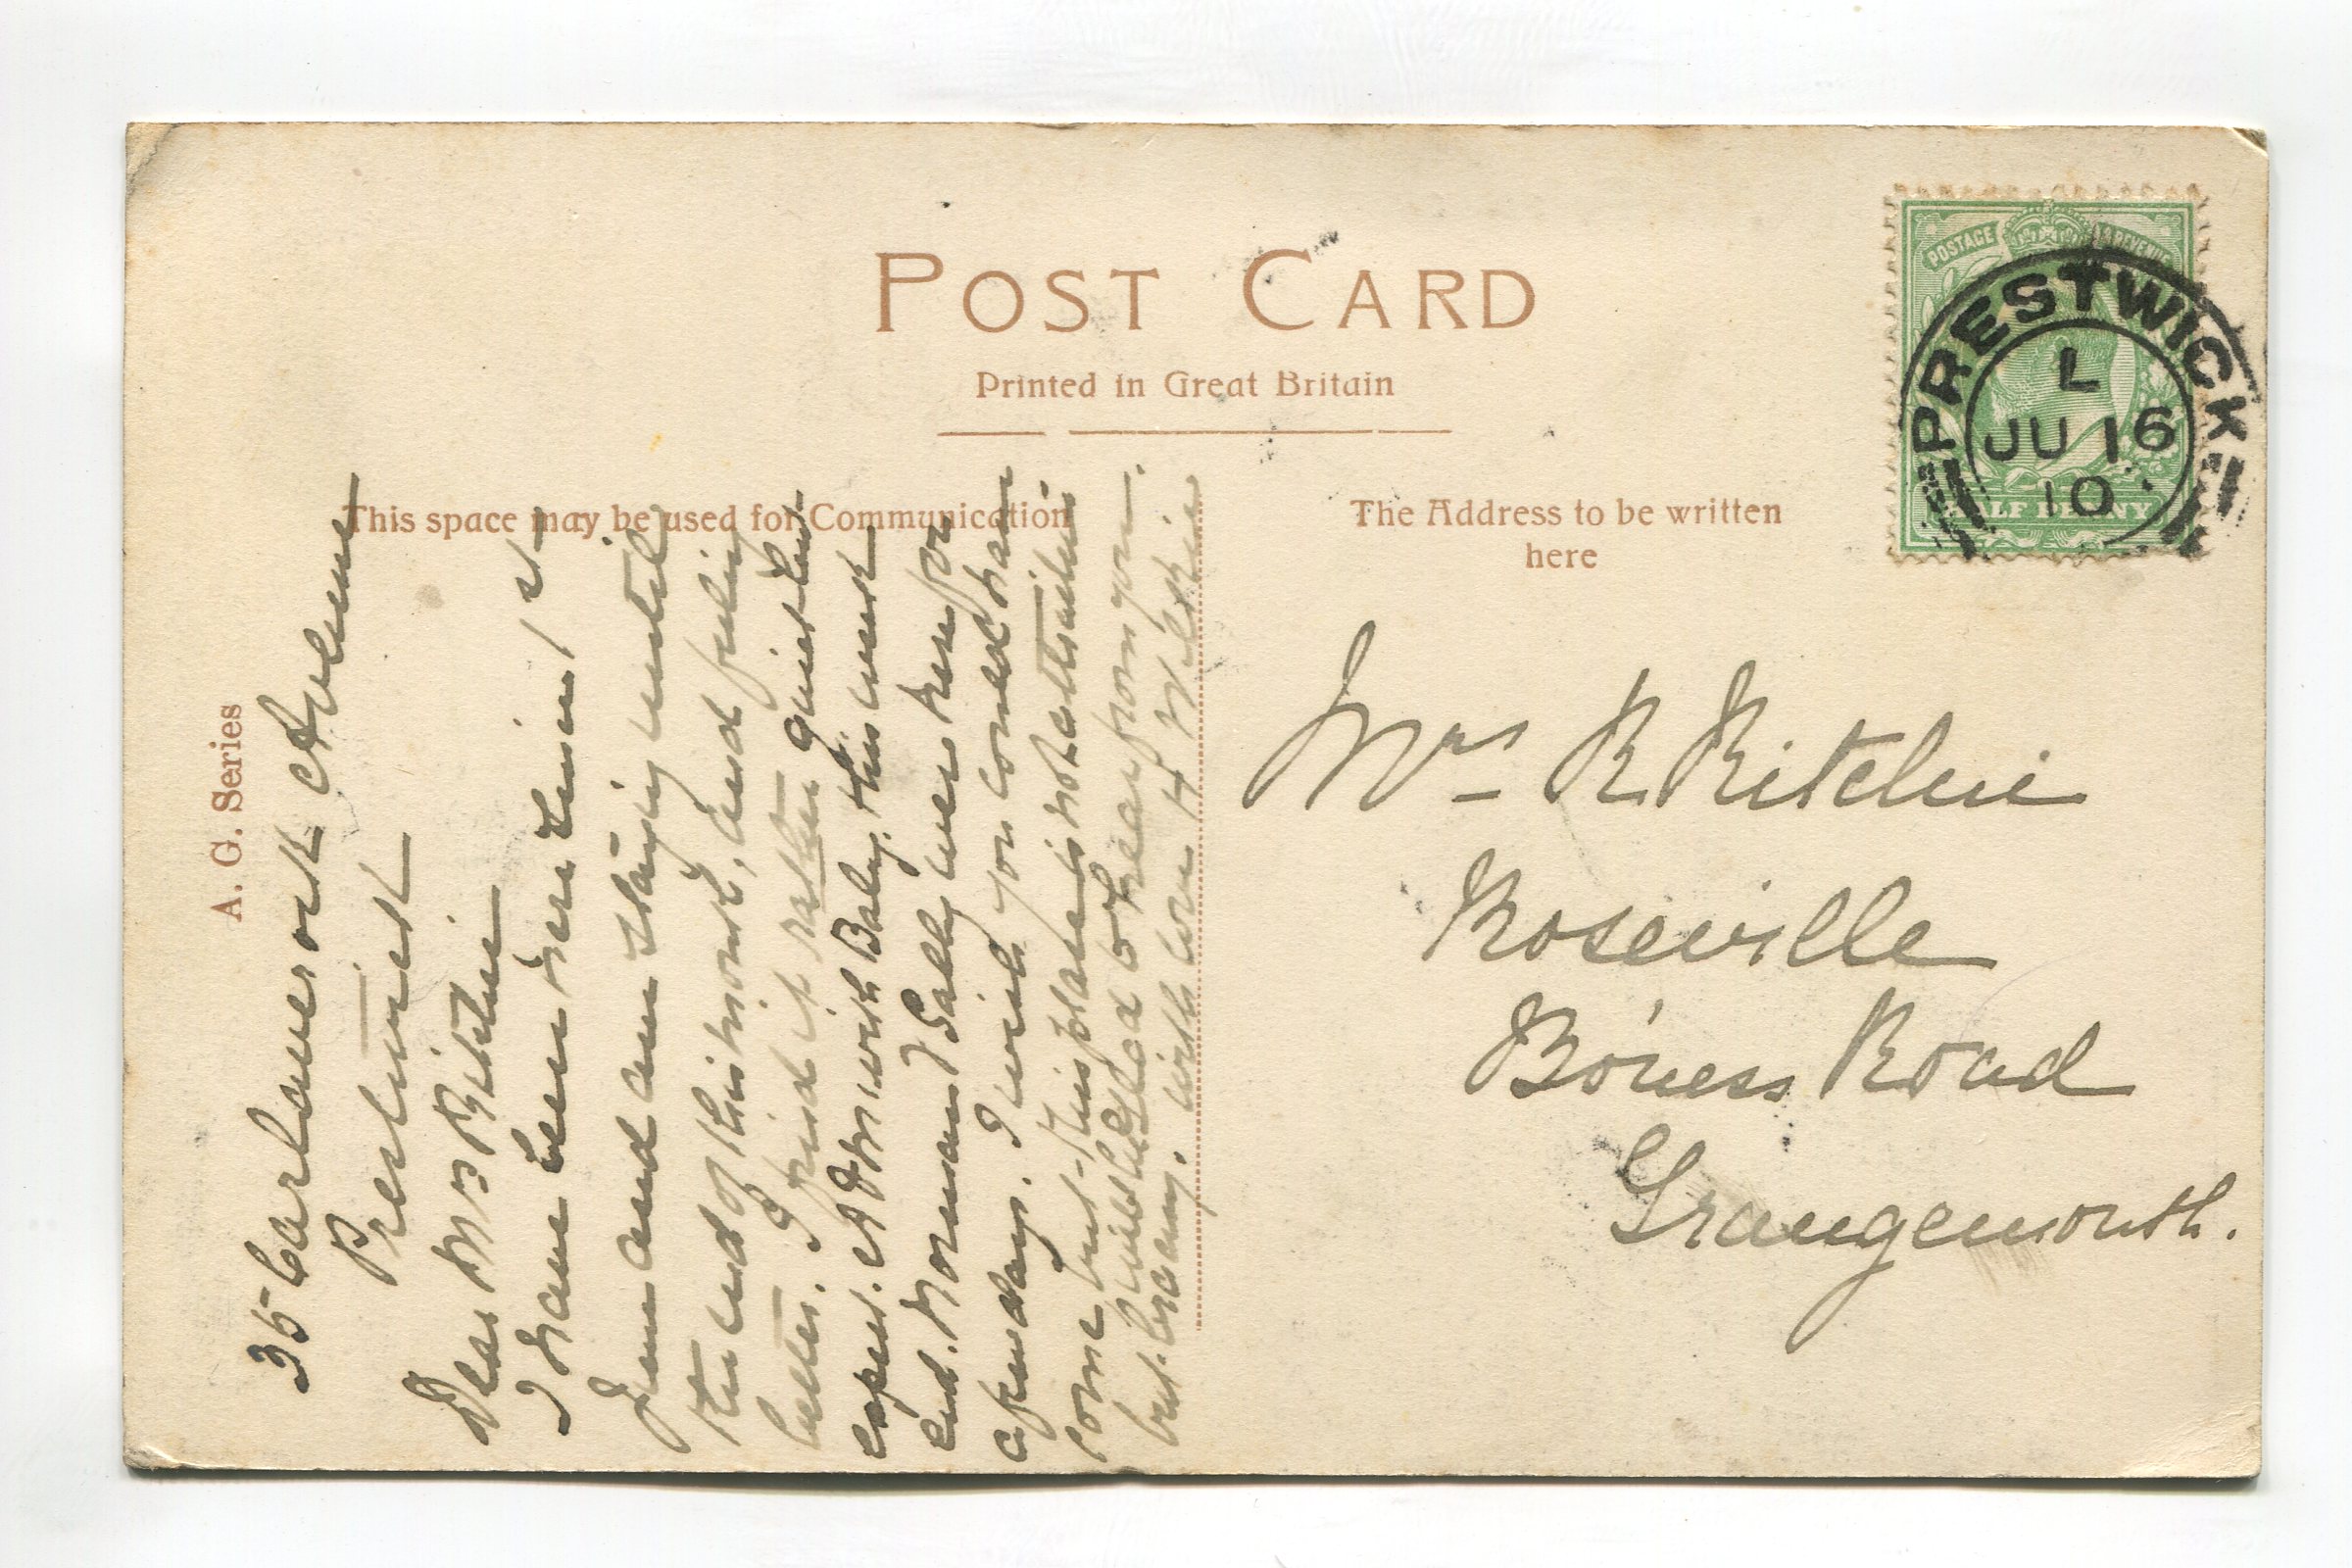 POST CARD
Printed in Great Britain
This space may be used for Communication
The Address to be written
here
A. G. Series
POSTAGE & REVENUE
HALF PENNY
PRESTWICK
L
JU 16
10
35 Carlaverock Avenue
Prestwick
Dear Mrs Ritchie
I have been here since 1st
June and am staying until
the end of this month, and feeling
better. I find it rather quiet but
expect. A D M with Baby this week
end. Norman & Sally were here for
a few days. I wish you could have
come but this place is not
but will be glad to hear from you
with love H Wilkie
Mrs R Ritchie
Roseville
Bo'ness Road
Grangemouth.